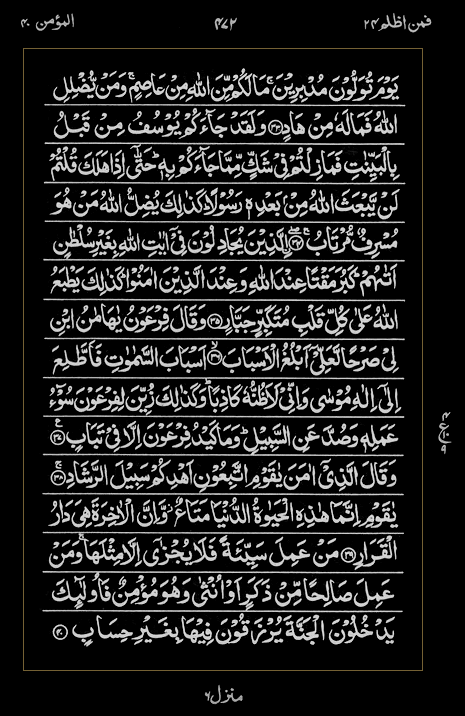 المؤمن ٤٠ ٤٧٢ فمن اظلم ٢٤
يَوْمَ تُوَلُّوْنَ مُدْبِرِيْنَ ۚ مَا لَكُمْ مِّنَ اللّٰهِ مِنْ عَاصِمٍ ۚ وَمَنْ يُّضْلِلِ
اللّٰهُ فَمَا لَهٗ مِنْ هَادٍ ﴿٣٣﴾ وَلَقَدْ جَآءَكُمْ يُوْسُفُ مِنْ قَبْلُ
بِالْبَيِّنٰتِ فَمَا زِلْتُمْ فِيْ شَكٍّ مِّمَّا جَآءَكُمْ بِهٖ ؕ حَتّٰۤى اِذَا هَلَكَ قُلْتُمْ
لَنْ يَّبْعَثَ اللّٰهُ مِنْۢ بَعْدِهٖ رَسُوْلًا ؕ كَذٰلِكَ يُضِلُّ اللّٰهُ مَنْ هُوَ
مُسْرِفٌ مُّرْتَابُ ﴿٣٤﴾ اۨلَّذِيْنَ يُجَادِلُوْنَ فِيْۤ اٰيٰتِ اللّٰهِ بِغَيْرِ سُلْطٰنٍ
اَتٰىهُمْ ؕ كَبُرَ مَقْتًا عِنْدَ اللّٰهِ وَعِنْدَ الَّذِيْنَ اٰمَنُوْا ؕ كَذٰلِكَ يَطْبَعُ
اللّٰهُ عَلٰى كُلِّ قَلْبِ مُتَكَبِّرٍ جَبَّارٍ ﴿٣٥﴾ وَقَالَ فِرْعَوْنُ يٰهَامٰنُ ابْنِ
لِيْ صَرْحًا لَّعَلِّيْۤ اَبْلُغُ الْاَسْبَابَ ﴿٣٦﴾ اَسْبَابَ السَّمٰوٰتِ فَاَطَّلِعَ
اِلٰۤى اِلٰهِ مُوْسٰى وَاِنِّيْ لَاَظُنُّهٗ كَاذِبًا ؕ وَكَذٰلِكَ زُيِّنَ لِفِرْعَوْنَ سُوْٓءُ
عَمَلِهٖ وَصُدَّ عَنِ السَّبِيْلِ ؕ وَمَا كَيْدُ فِرْعَوْنَ اِلَّا فِيْ تَبَابٍ ﴿٣٧﴾
وَقَالَ الَّذِيْۤ اٰمَنَ يٰقَوْمِ اتَّبِعُوْنِ اَهْدِكُمْ سَبِيْلَ الرَّشَادِ ﴿٣٨﴾
يٰقَوْمِ اِنَّمَا هٰذِهِ الْحَيٰوةُ الدُّنْيَا مَتَاعٌ ؗ وَّاِنَّ الْاٰخِرَةَ هِيَ دَارُ
الْقَرَارِ ﴿٣٩﴾ مَنْ عَمِلَ سَيِّئَةً فَلَا يُجْزٰۤى اِلَّا مِثْلَهَا ۚ وَمَنْ
عَمِلَ صَالِحًا مِّنْ ذَكَرٍ اَوْ اُنْثٰى وَهُوَ مُؤْمِنٌ فَاُولٰٓئِكَ
يَدْخُلُوْنَ الْجَنَّةَ يُرْزَقُوْنَ فِيْهَا بِغَيْرِ حِسَابٍ ﴿٤٠﴾
منزل ٦